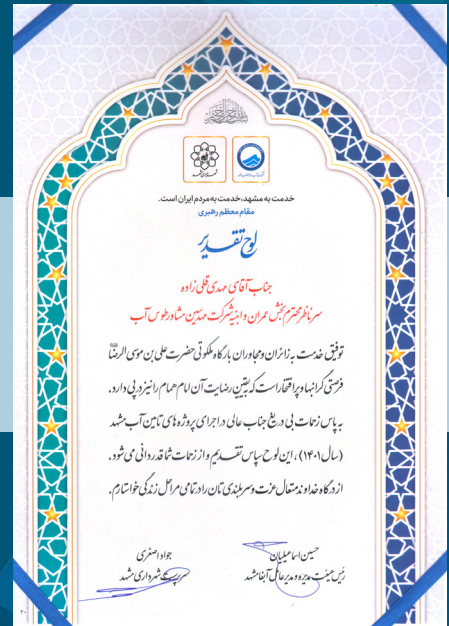 خدمت به مشهد، خدمت به مردم ایران است.
مقام معظم رهبری
لوح تقدیر
جناب آقای مهدی قلی زاده
سرناظر محترم بخش عمران و ابنیه شرکت مهندسین مشاور طوس آب
توفیق خدمت به زائران و مجاوران بارگاه ملکوتی حضرت علی بن موسی الرضا
فرصتی گرانبها و پر افتخار است که بیقین رضایت آن امام همام را نیز در پی دارد.
به پاس زحمات بی دریغ جناب عالی در اجرای پروژه های تامین آب مشهد
(سال ۱۴۰۱)، این لوح سپاس تقدیم و از زحمات شما قدردانی می شود.
از درگاه خداوند متعال عزت و سربلندی تان را در تمامی مراحل زندگی خواستارم.
حسین اسماعیلیان
رئیس هیئت مدیره و مدیرعامل آبفا مشهد
جواد اصغری
سرپرست شهرداری مشهد